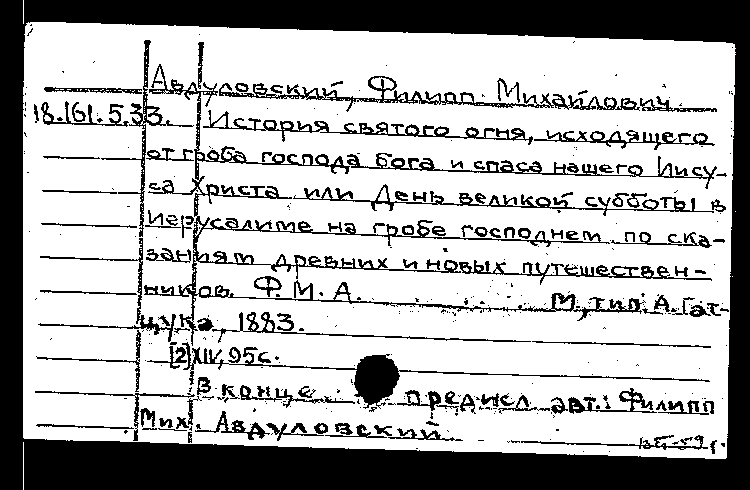 Авдуловский, Филипп Михайлович.
18.161.5.33. История святого огня, исходящего
от гроба господа бога и спаса нашего Иису-
са Христа или День великой субботы в
Иерусалиме на гробе господнем по ска-
заниям древних и новых путешествен-
ников. Ф.М.А. М., тип. А. Гат-
цука, 1883.
[2] XIV, 95 с.
В конце предисл. авт.: Филипп
Мих. Авдуловский.